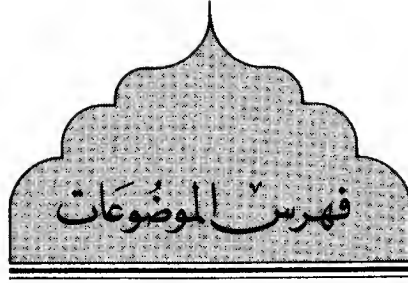 فهرس الموضوعات